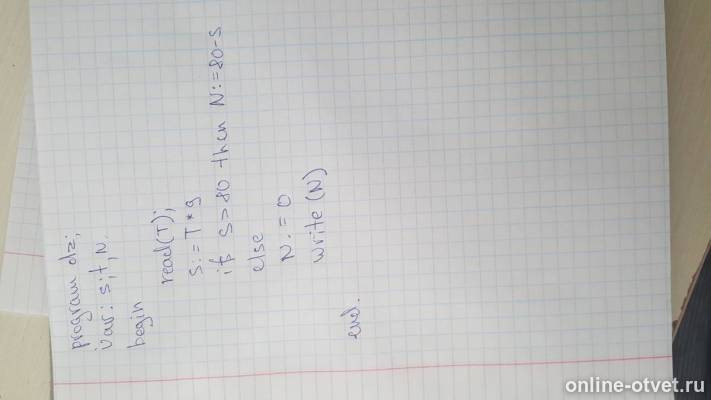 program dz;
var: s;t,n.
begin
read(T);
S:=T*9
if S>80 then N:=80-S
else
N:=0
write(N)
end.
online-otvet.ru